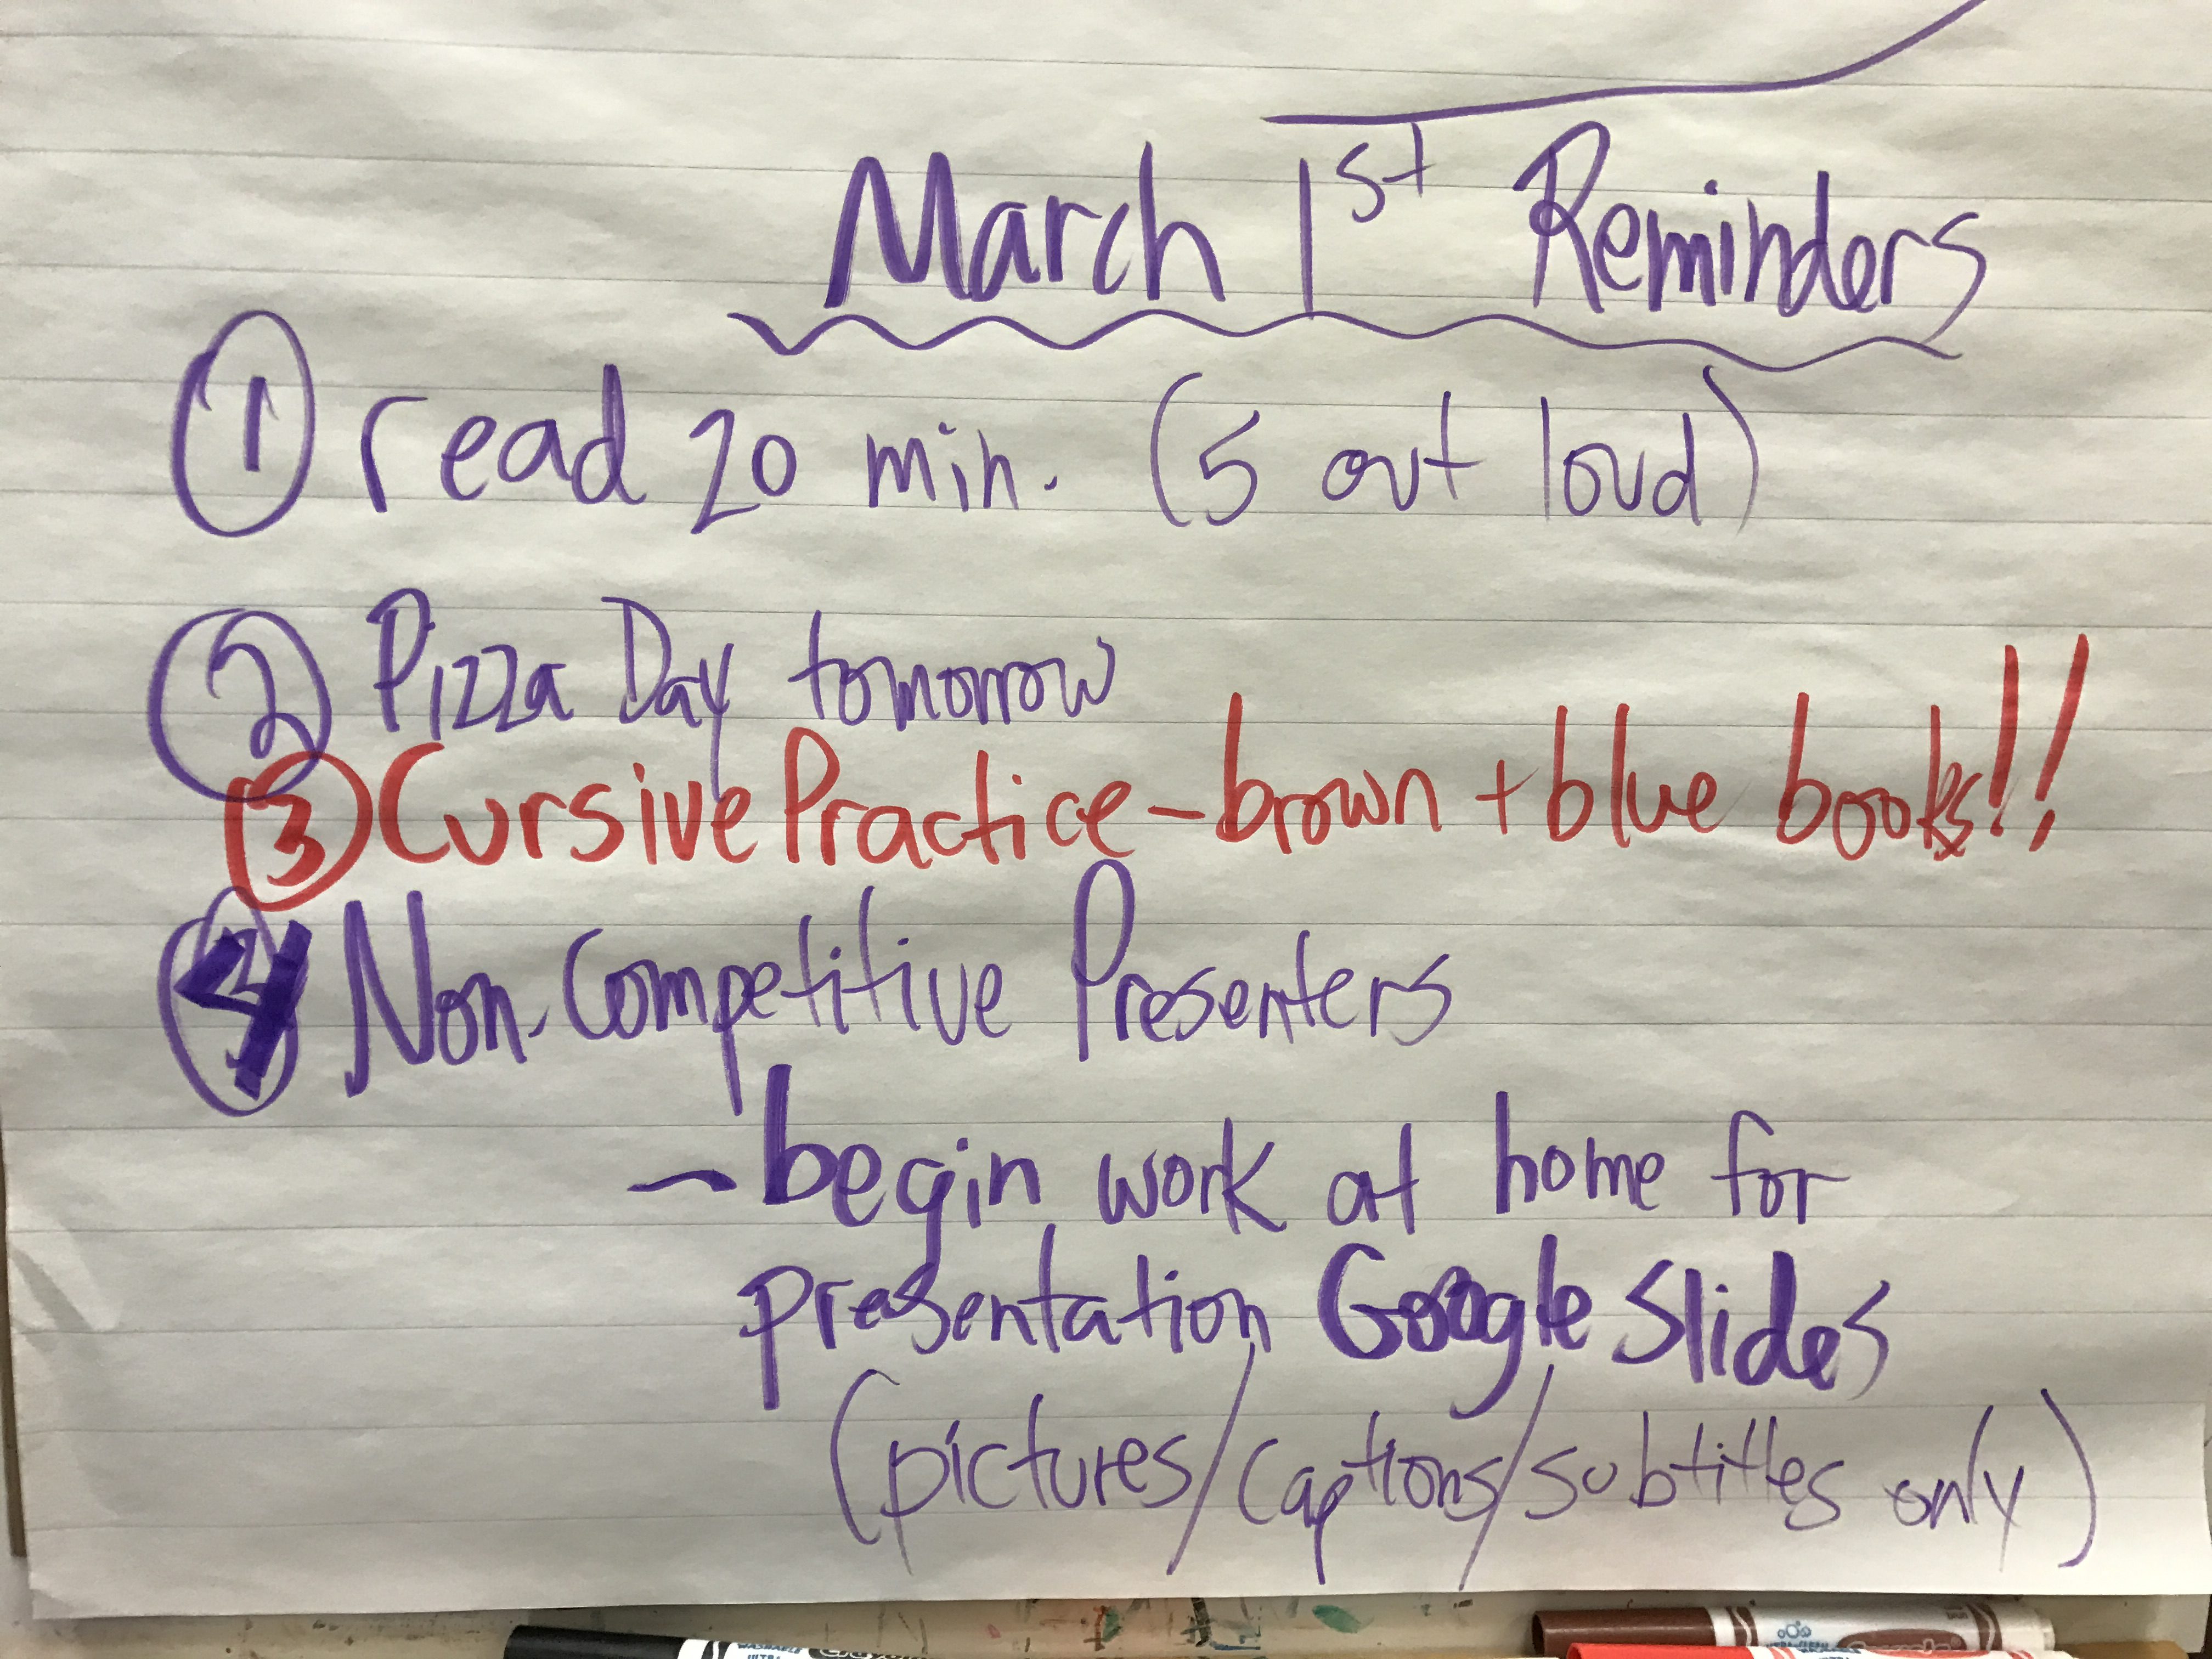 March 1st Reminders
① read 20 min. (5 out loud)
② Pizza Day tomorrow
③ Cursive Practice - brown + blue books!!
④ Non-Competitive Presenters
- begin work at home for
presentation Google Slides
(pictures/captions/subtitles only)
WASHABLE Crayola
ULTRA-CLEAN Crayola